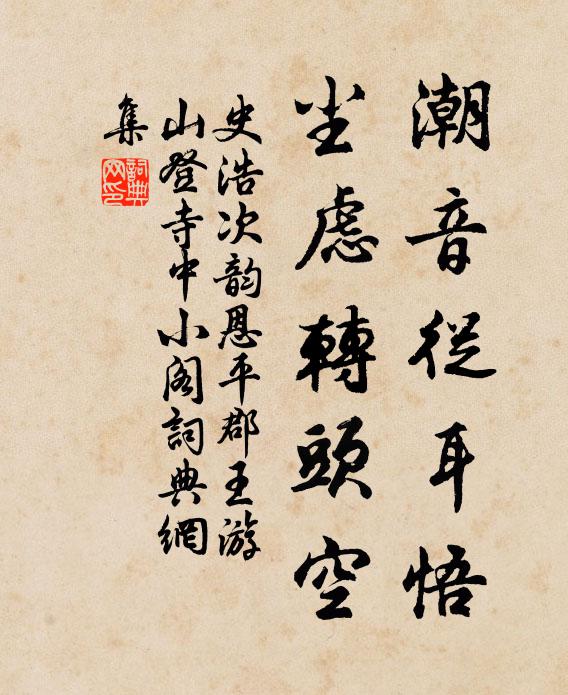 潮音從耳悟
尘慮轉頭空
史浩次韵恩平郡王游
山登寺中小阁詞典網
集
詞典
网印